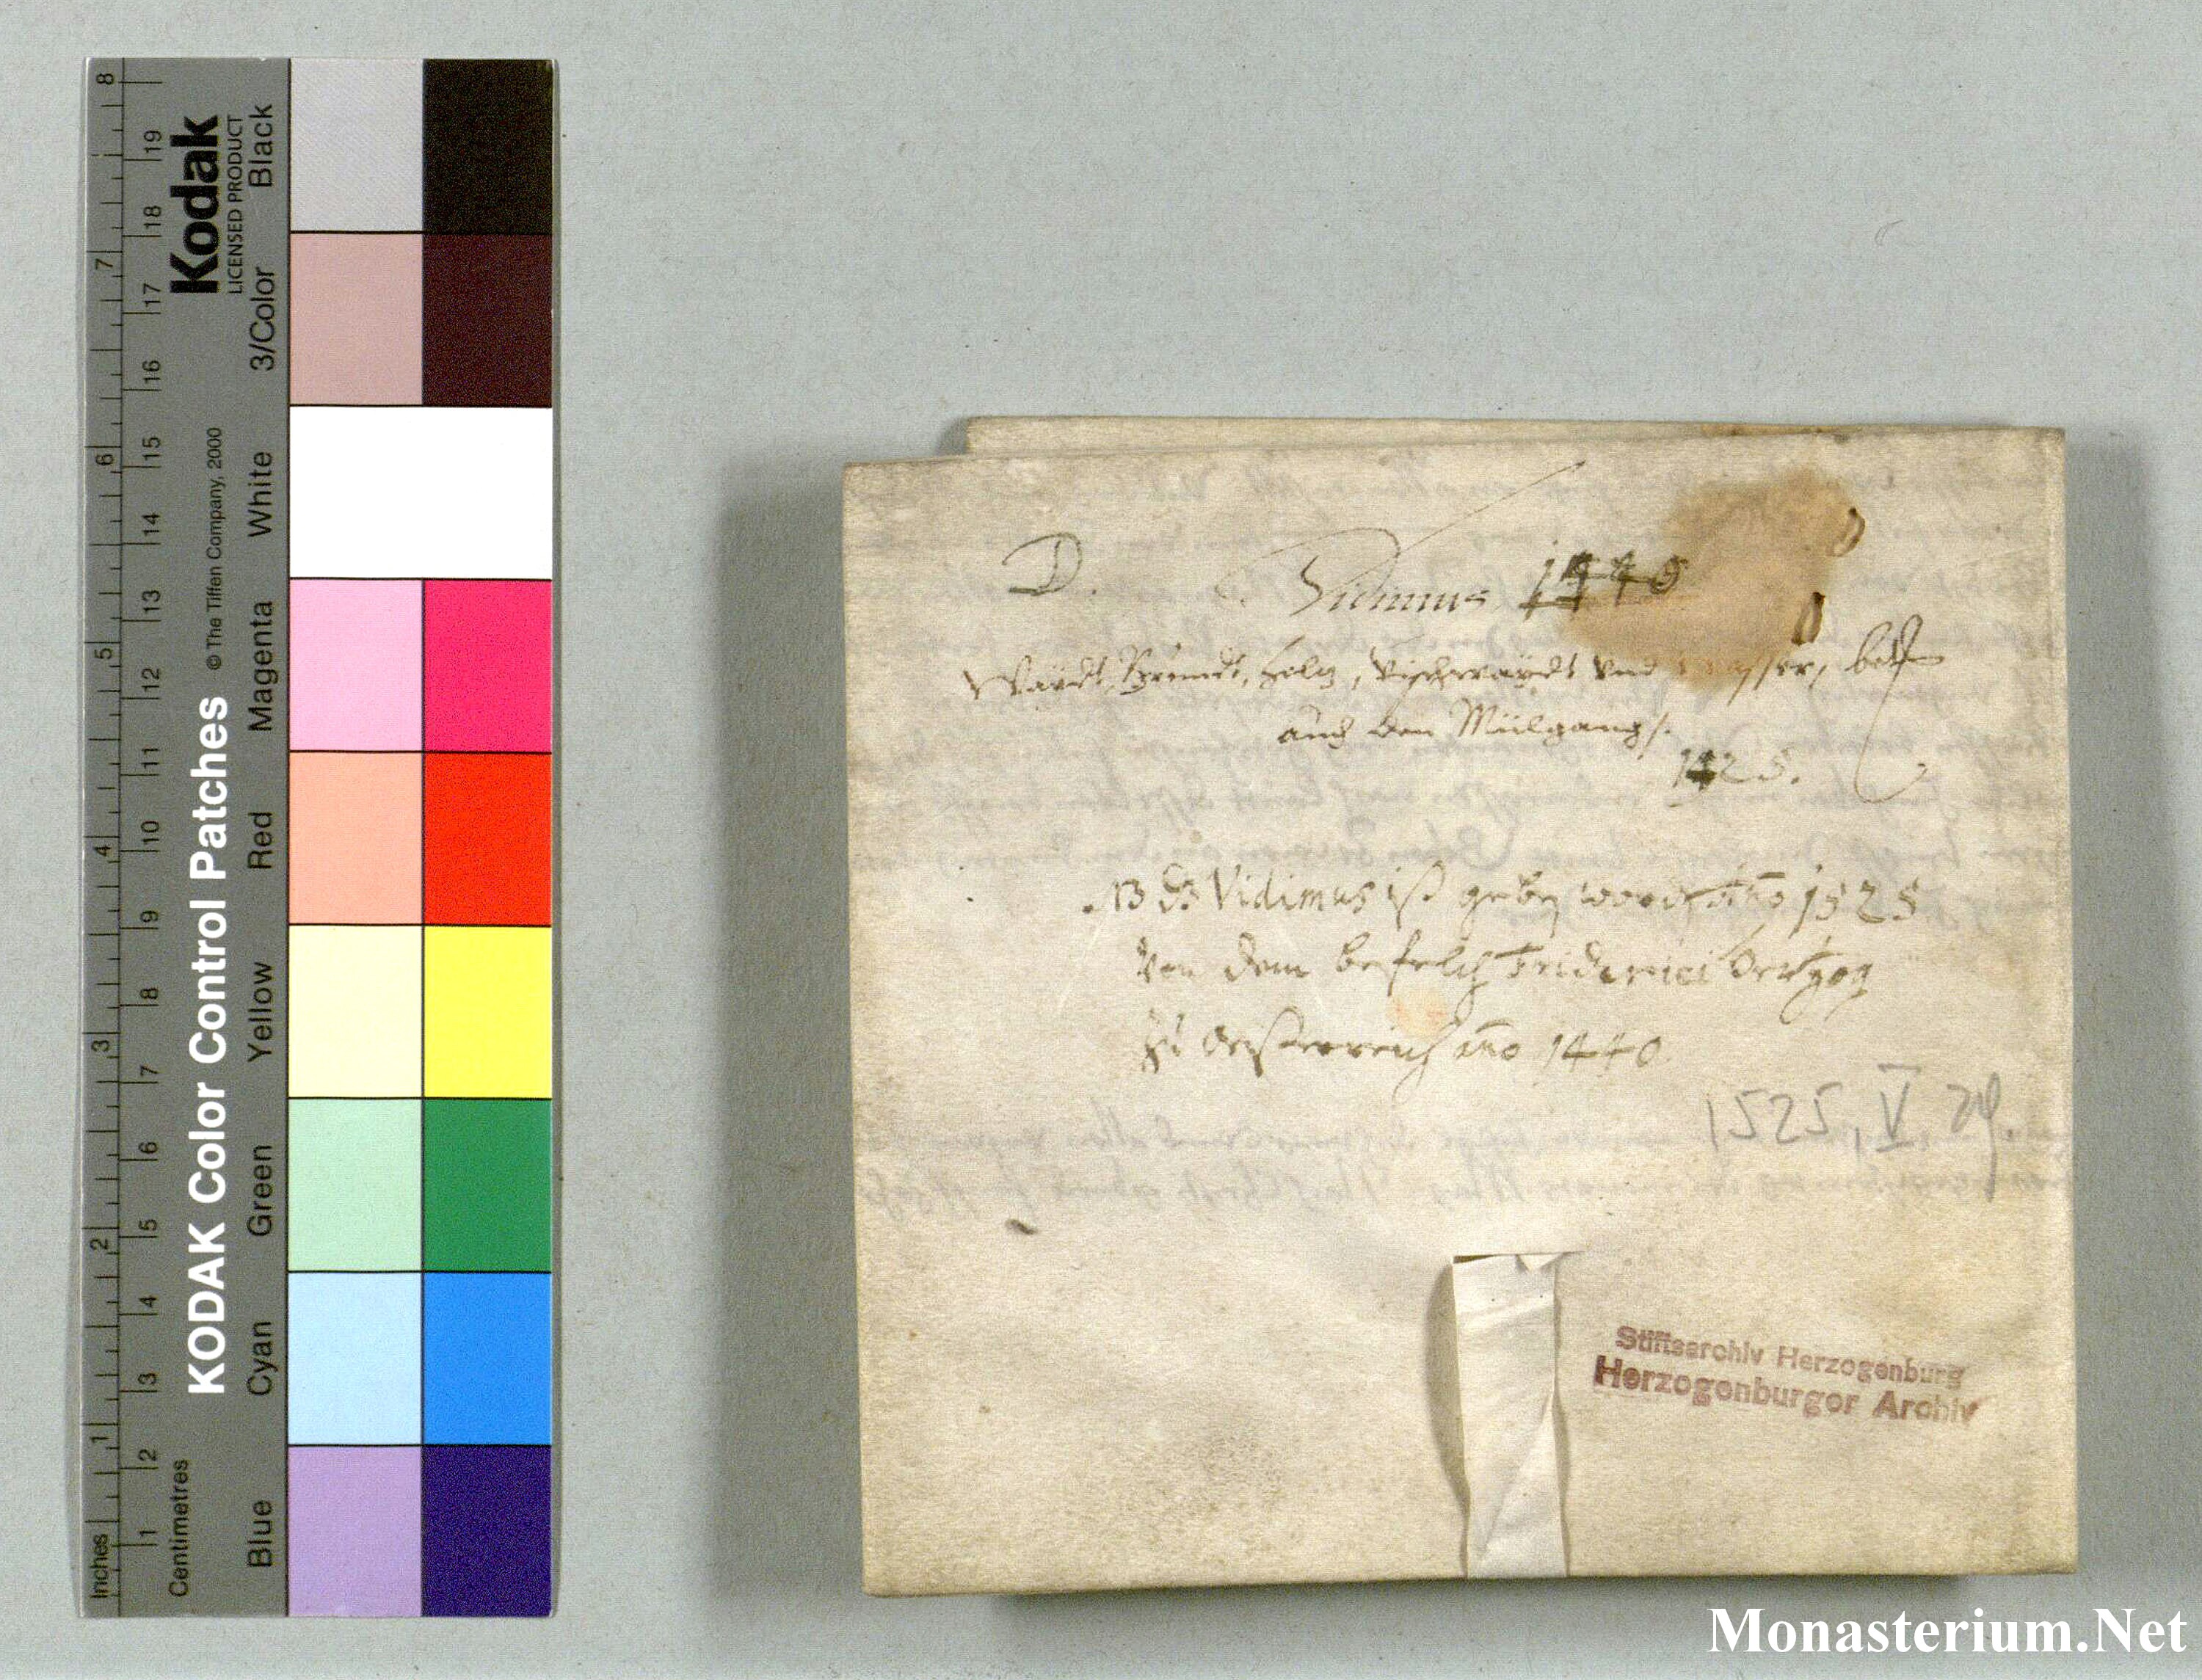 8
7
6
5
4
3
2
1
Inches
19
18
17
16
15
14
13
12
11
10
9
8
7
6
5
4
3
2
1
Centimetres
KODAK Color Control Patches © The Tiffen Company, 2000 Kodak
LICENSED PRODUCT
Blue Cyan Green Yellow Red Magenta White 3/Color Black
D. Vidimus 1440
Waydt, Gründt, Holz, Vischwaydt Vnd Wasser, betr
auch den Mülgang.
1425.
NB Vidimus ist geben word Ano 1525
Von dem befelch Friderici Hertzog
Zu Oesterreich ano 1440
1525, V. 29.
Stiftsarchiv Herzogenburg
Herzogenburger Archiv
Monasterium.Net